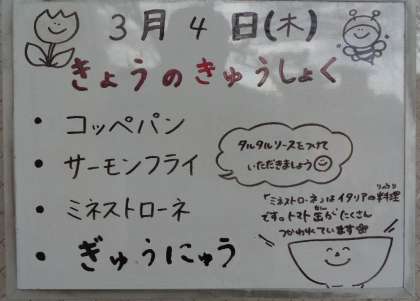 3月4日(木)
きょうのきゅうしょく
・コッペパン
・サーモンフライ
・ミネストローネ
・ぎゅうにゅう
タルタルソースをつけて
いただきましょう
りょうり
「ミネストローネ」はイタリアの料理
です。トマト缶がたくさん
つかわれています